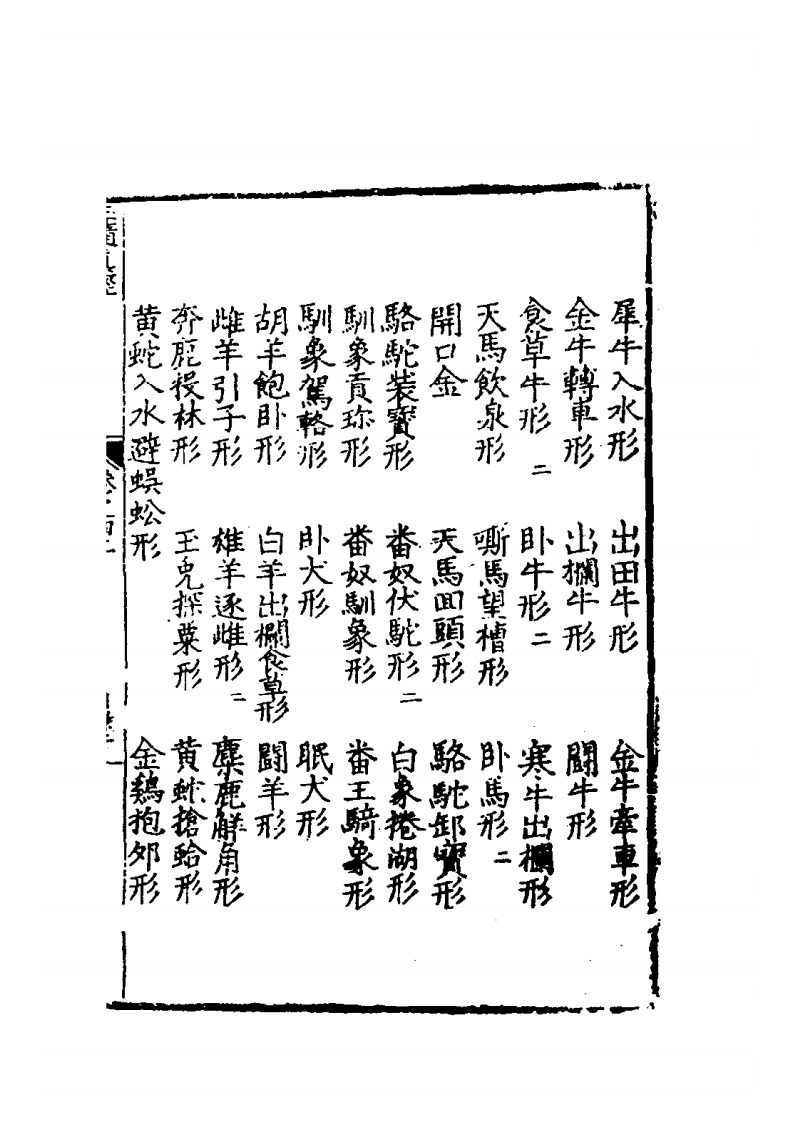 犀牛入水形　出田牛形　金牛牽車形
金牛轉車形　出欄牛形　鬪牛形
食草牛形二　卧牛形二　寒牛出欄形
天馬飲泉形　嘶馬望槽形　卧馬形二
開口金　天馬回頭形　駱駝卸寳形
駱駝装寳形　畨奴伏駝形二　白象捲湖形
馴象貢珎形　畨奴馴象形　畨王騎象形
馴象駕輅形　卧犬形　眠犬形
胡羊飽卧形　白羊出欄食草形　鬪羊形
雌羊引子形　雄羊逐雌形二　麋鹿觧角形
奔鹿投林形　玉兎採藥形　黄蛇搶蛤形
黄蛇入水避蜈蚣形　金鷄抱夘形